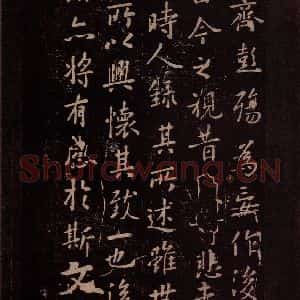 齊彭殤為妄作後
由今之視昔悲夫
時人錄其所述雖世
所以興懷其致一也後
亦將有感於斯文
Shufawang.CN